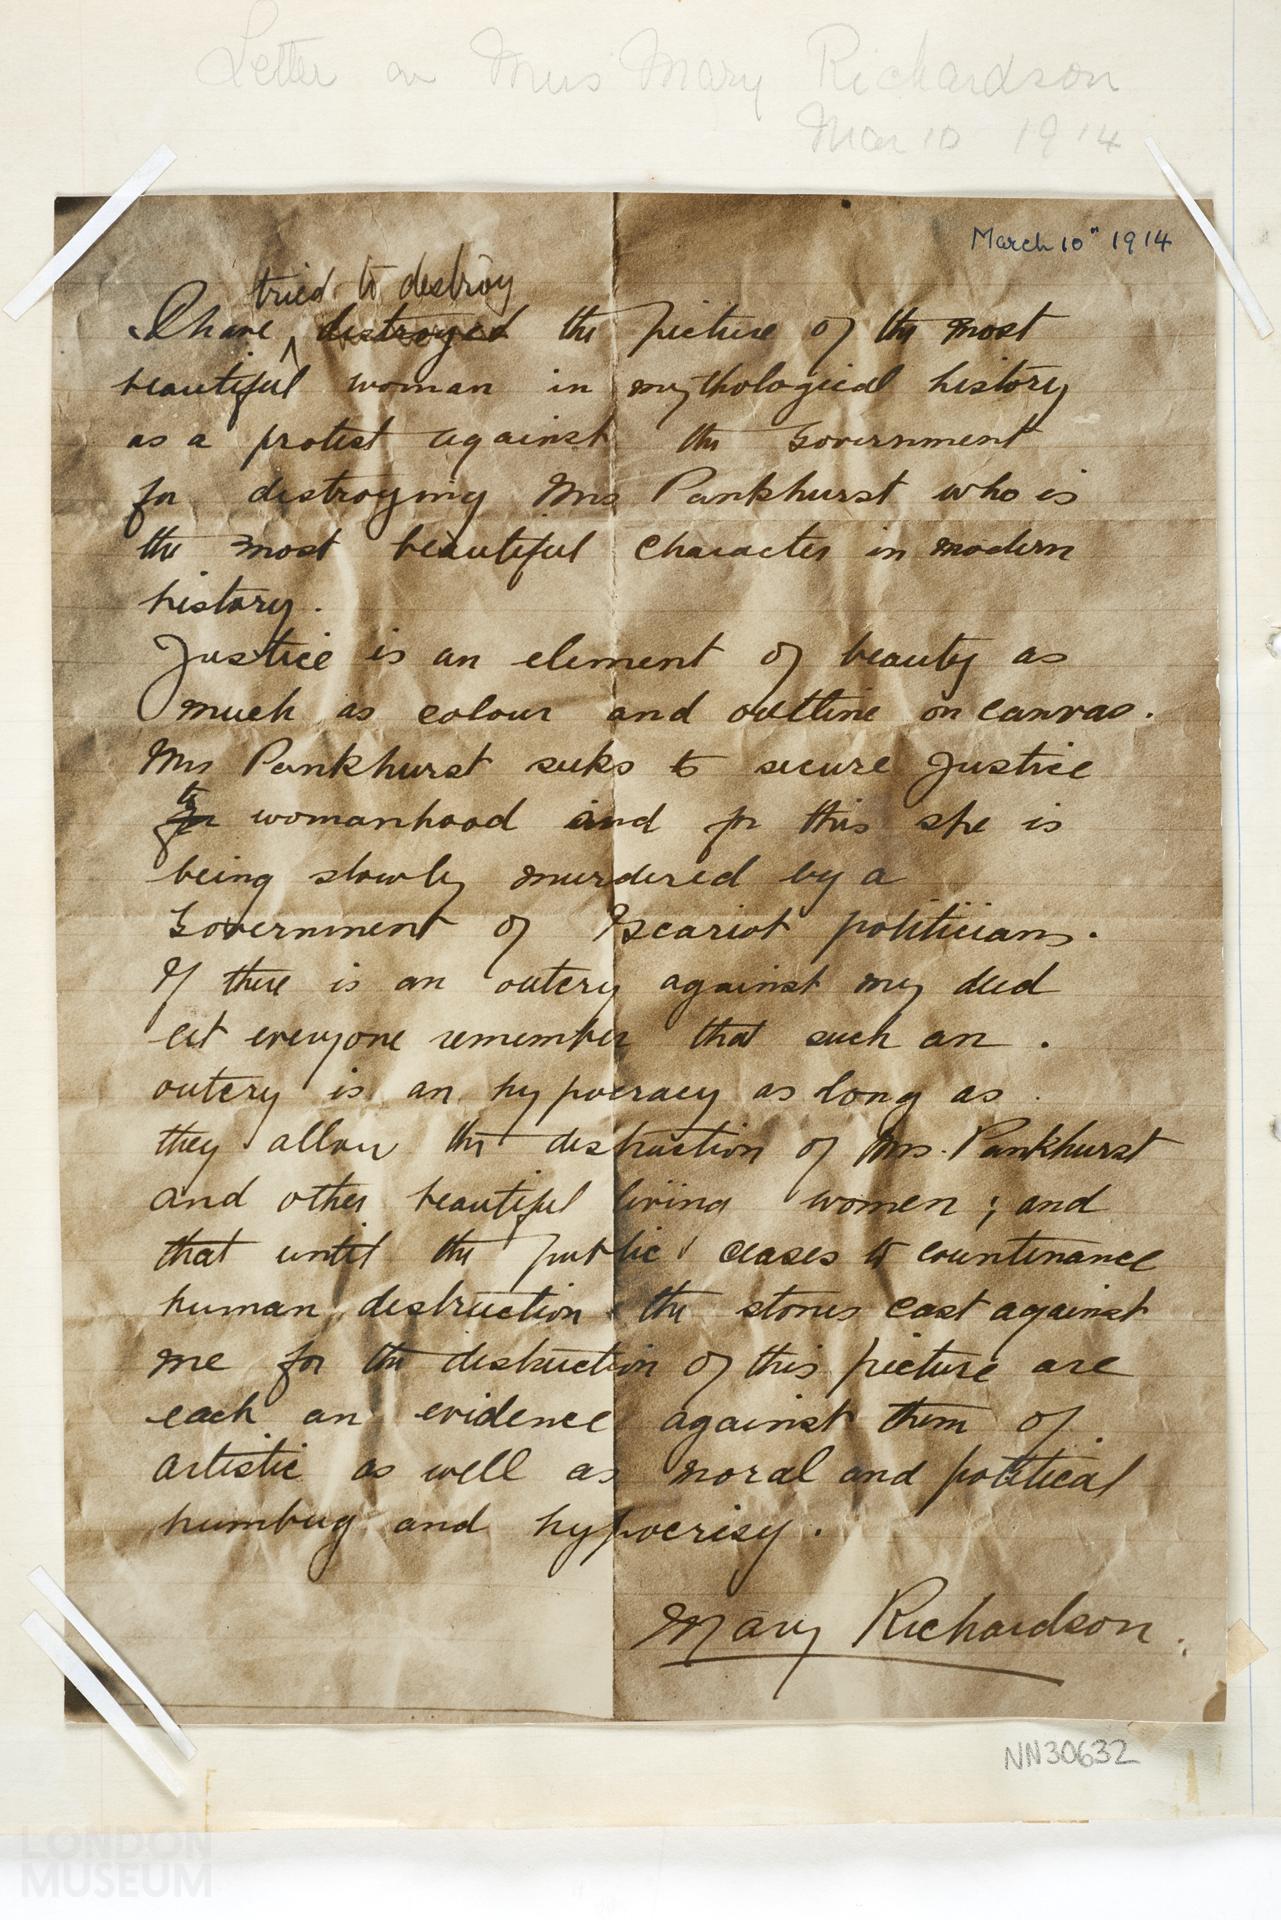 Letter on Miss Mary Richardson
Mar 10 1914
March 10" 1914
tried to destroy
I have destroyed the picture of the most
beautiful woman in mythological history
as a protest against the Government
for destroying Mrs Pankhurst who is
the most beautiful character in modern
history.
Justice is an element of beauty as
much as colour and outline on canvas.
Mrs Pankhurst seeks to secure Justice
to
for womanhood and for this she is
being slowly murdered by a
Government of Iscariot politicians.
If there is an outcry against my deed
let everyone remember that such an
outcry is an hypocracy as long as
they allow the destruction of Mrs. Pankhurst
and other beautiful living women; and
that until the public ceases to countenance
human destruction the stones cast against
me for the destruction of this picture are
each an evidence against them of
artistic as well as moral and political
humbug and hypocrisy.
Mary Richardson.
NN30632
LONDON
MUSEUM